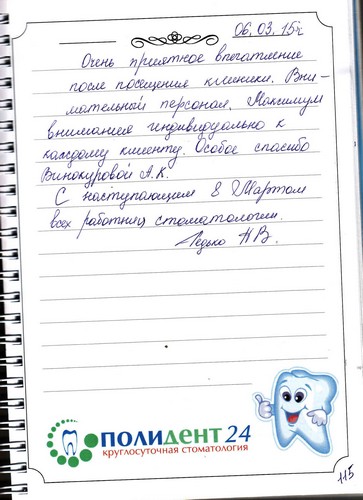 06.03.15г
Очень приятное впечатление
после посещения клиники. Вни-
мательный персонал. Максимум
внимания индивидуально к
каждому клиенту. Особое спасибо
Винокуровой А.К.
С наступающим 8 Мартом
всех работниц стоматологии.
Н.В.
ПОЛИДЕНТ 24
круглосуточная стоматология
115